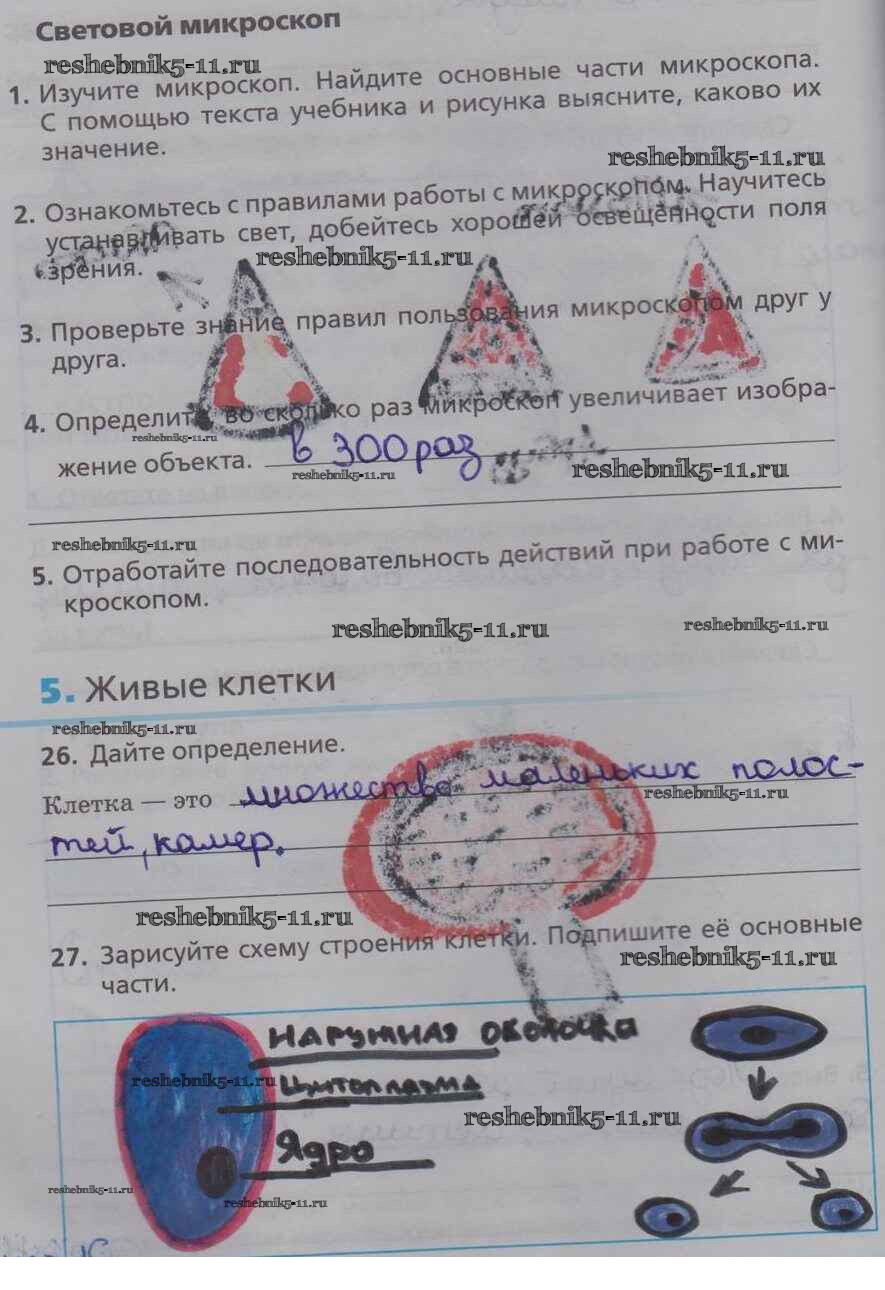 Световой микроскоп
reshebnik5-11.ru
1. Изучите микроскоп. Найдите основные части микроскопа.
С помощью текста учебника и рисунка выясните, каково их
значение.
reshebnik5-11.ru
2. Ознакомьтесь с правилами работы с микроскопом. Научитесь
устанавливать свет, добейтесь хорошей освещённости поля
зрения.
reshebnik5-11.ru
3. Проверьте знание правил пользования микроскопом друг у
друга.
4. Определите, во сколько раз микроскоп увеличивает изобра-
reshebnik5-11.ru
жение объекта. в 300 раз
reshebnik5-11.ru
reshebnik5-11.ru
reshebnik5-11.ru
5. Отработайте последовательность действий при работе с ми-
кроскопом.
reshebnik5-11.ru
reshebnik5-11.ru
5. Живые клетки
reshebnik5-11.ru
26. Дайте определение.
Клетка — это множество маленьких полос-
reshebnik5-11.ru
тей, камер.
reshebnik5-11.ru
27. Зарисуйте схему строения клетки. Подпишите её основные
части.
reshebnik5-11.ru
Наружная оболочка
reshebnik5-11.ru
Цитоплазма
reshebnik5-11.ru
Ядро
reshebnik5-11.ru
reshebnik5-11.ru